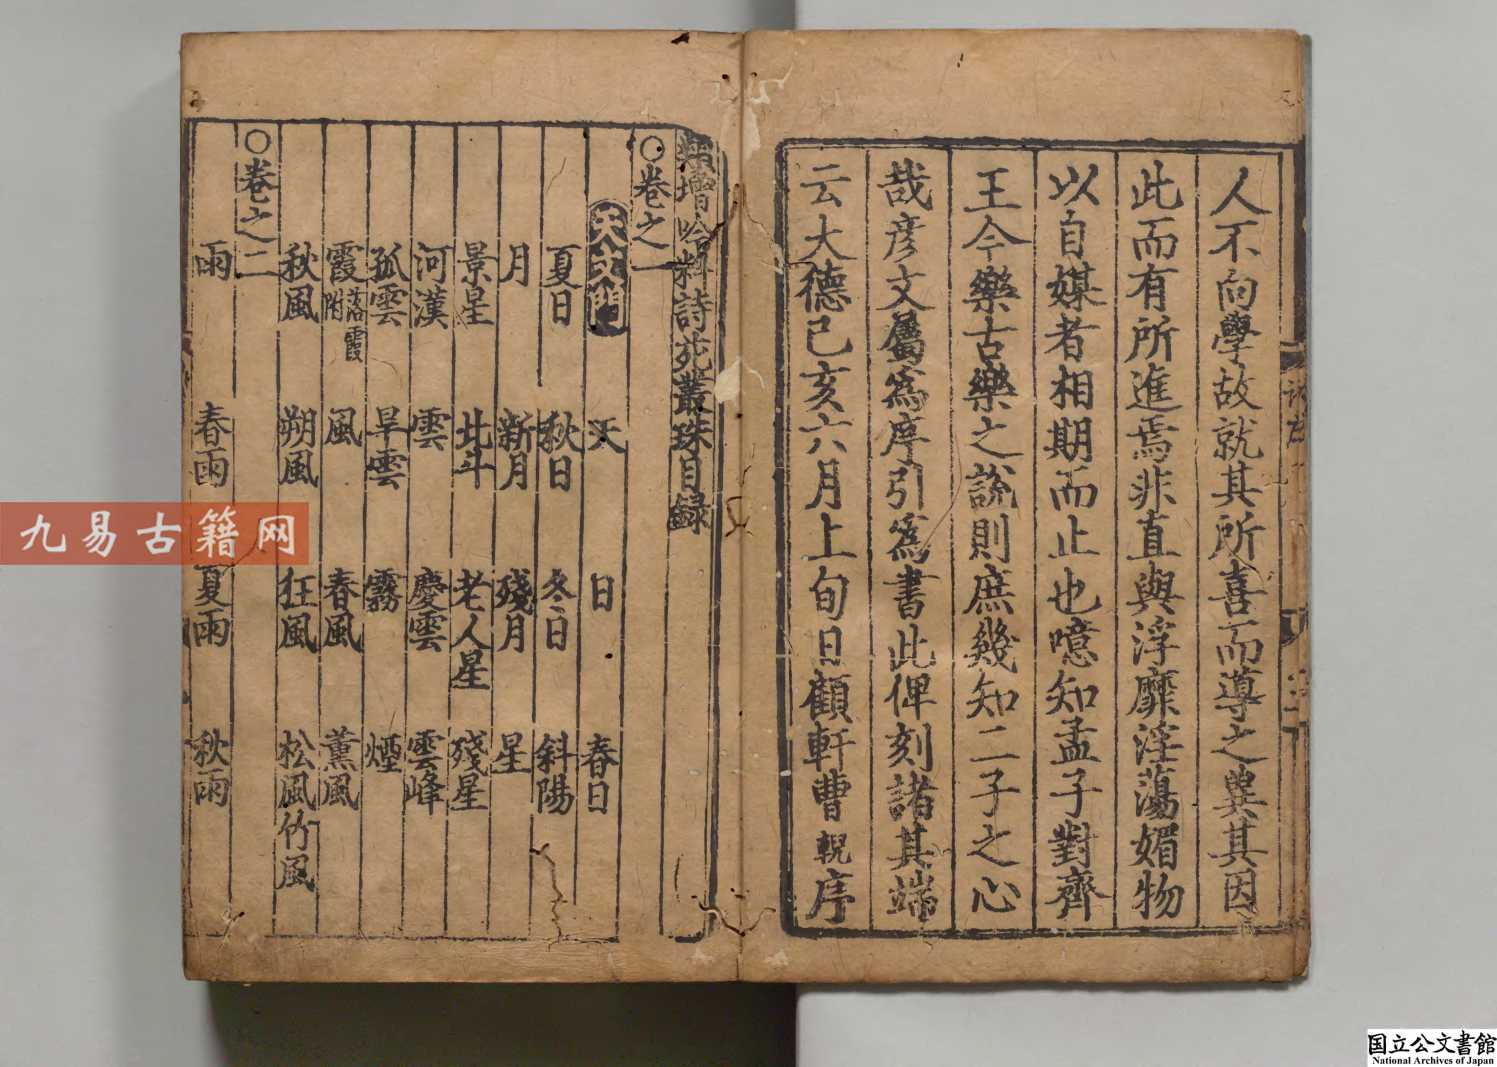 人不向學故就其所喜而導之異其因
此而有所進焉非直與浮靡淫蕩媚物
以自媒者相期而止也噫知孟子對齊
王今樂古樂之說則庶幾知二子之心
哉彥文屬爲序引爲書此俾刻諸其端
云大德己亥六月上旬日顧軒曹輗序
增吟料詩苑叢珠目録
○卷之一
天文門 天 日 春日
夏日 秋日 冬日 斜陽
月 新月 殘月 星
景星 北斗 老人星 殘星
河漢 雲 慶雲 雲峰
孤雲 旱雲 霧 煙
霞 落霞附 風 春風 薰風
秋風 朔風 狂風 松風竹風
○卷之二
雨 春雨 夏雨 秋雨
九易古籍网
国立公文書館
National Archives of Japan